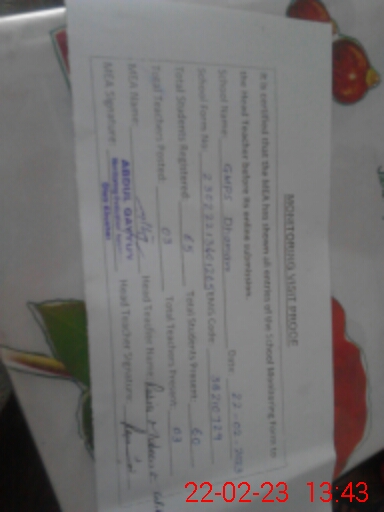 MONITORING VISIT PROOF
It is certified that the MEA has shown all entries of the School Monitoring Form to
the Head Teacher before its online submission.
School Name: GMPS Dhoman Date: 22-02-2023
School Form No: EMIS Code: 38210329
Total Students Registered: 65 Total Students Present: 60
Total Teachers Posted: 03 Total Teachers Present: 03
MEA Name: ABDUL QAYYUM Head Teacher Name:
MEA Signature: Head Teacher Signature:
22-02-23 13:43